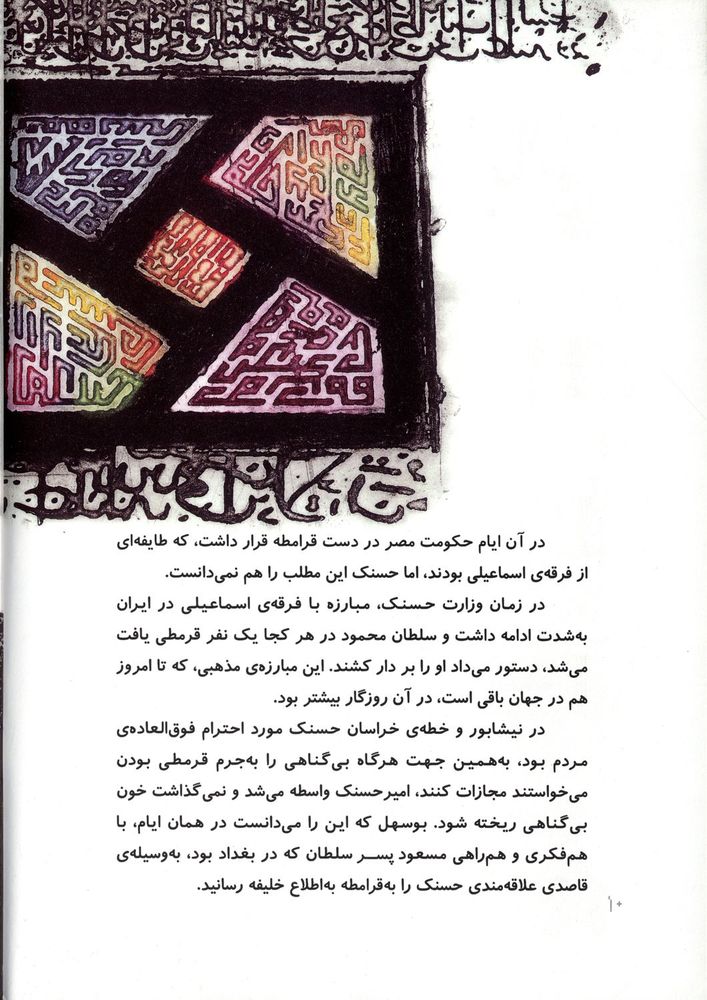 در آن ایام حکومت مصر در دست قرامطه قرار داشت، که طایفه‌ای
از فرقه‌ی اسماعیلی بودند، اما حسنک این مطلب را هم نمی‌دانست.
در زمان وزارت حسنک، مبارزه با فرقه‌ی اسماعیلی در ایران
به‌شدت ادامه داشت و سلطان محمود در هر کجا یک نفر قرمطی یافت
می‌شد، دستور می‌داد او را بر دار کشند. این مبارزه‌ی مذهبی، که تا امروز
هم در جهان باقی است، در آن روزگار بیشتر بود.
در نیشابور و خطه‌ی خراسان حسنک مورد احترام فوق‌العاده‌ی
مردم بود، به‌همین جهت هرگاه بی‌گناهی را به‌جرم قرمطی بودن
می‌خواستند مجازات کنند، امیرحسنک واسطه می‌شد و نمی‌گذاشت خون
بی‌گناهی ریخته شود. بوسهل که این را می‌دانست در همان ایام، با
هم‌فکری و هم‌راهی مسعود پسر سلطان که در بغداد بود، به‌وسیله‌ی
قاصدی علاقه‌مندی حسنک را به‌قرامطه به‌اطلاع خلیفه رسانید.
۱۰